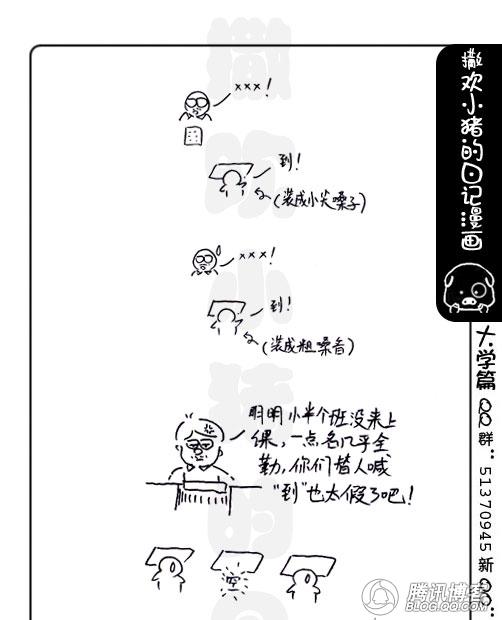 ×××!
到!
(装成小尖嗓子)
×××!
到!
(装成粗嗓音)
明明小半个班没来上
课,一点名几乎全
勤,你们替人喊
"到"也太假了吧!
撒欢小猪的日记漫画
大学篇
QQ群:51370945 新QQ:
腾讯博客
BLOG.QQ.COM